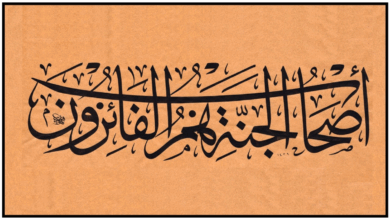 أَصْحَابُ الْجَنَّةِ هُمُ الْفَائِزُونَ